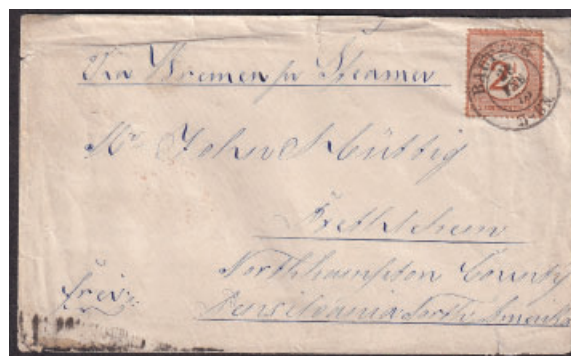 Via Bremen pr Steamer
2½
Mr John Hüttig
Bethlehem
Northhampton County
frei
Pensilvania North Amerika